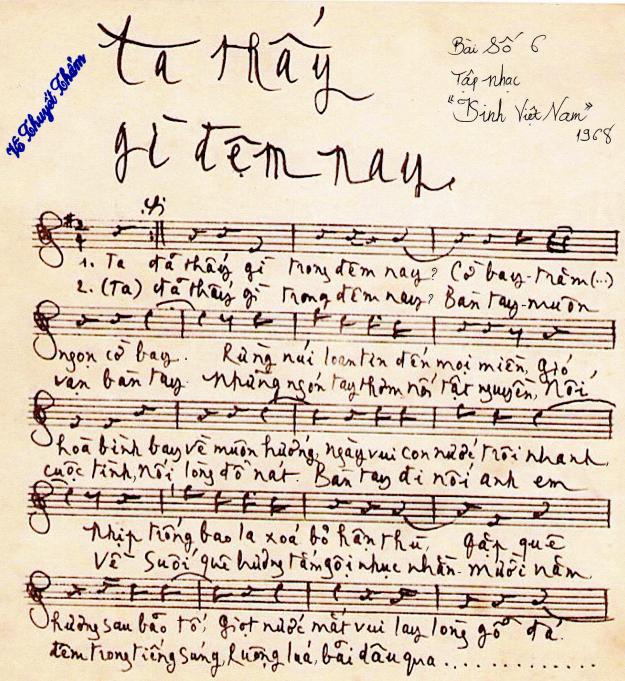 Ta thấy
gì đêm nay.
Bài Số 6
Tập nhạc
"Kinh Việt Nam"
1968
Võ Thuyết Thẩm
1. Ta đã thấy gì trong đêm nay? Cờ bay trăm (...)
2. (Ta) đã thấy gì trong đêm nay? Bàn tay muôn
ngọn cờ bay. Rừng núi loan tin đến mọi miền, gió
vạn bàn tay. Những ngón tay thơm nối tật nguyền, Nối
hoà bình bay về muôn hướng, ngày vui con nước trôi nhanh,
cuộc tình, nối lòng đổ nát. Bàn tay đi nối anh em
nhịp trống bao la xoá bỏ hận thù, gặp quê
Về suối quê hương tắm gội nhục nhằn. Mười năm
hương sau bão tố, giọt nước mắt vui lay lòng gỗ đá.
đêm trong tiếng súng, Ruộng lúa, bãi dâu qua ............